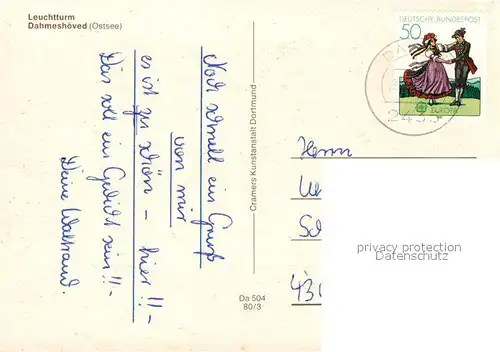 Leuchtturm
Dahmeshöved (Ostsee)
DEUTSCHE BUNDESPOST
50
EUROPA
Noch schnell ein Gruß
von mir
es ist zu schön – hier!! –
Das soll ein Gedicht sein!! –
Deine Waltraud.
Cramers Kunstanstalt Dortmund
Da 504
80/3
Herrn
privacy protection
Datenschutz